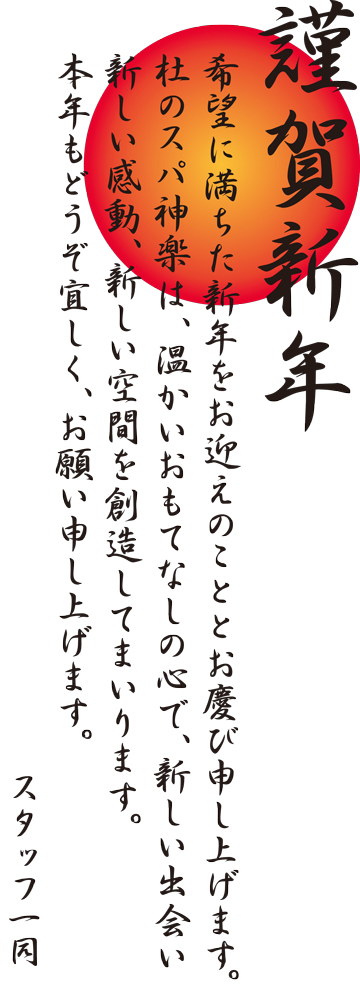 謹賀新年
希望に満ちた新年をお迎えのこととお慶び申し上げます。
杜のスパ神楽は、温かいおもてなしの心で、新しい出会い
新しい感動、新しい空間を創造してまいります。
本年もどうぞ宜しく、お願い申し上げます。
スタッフ一同